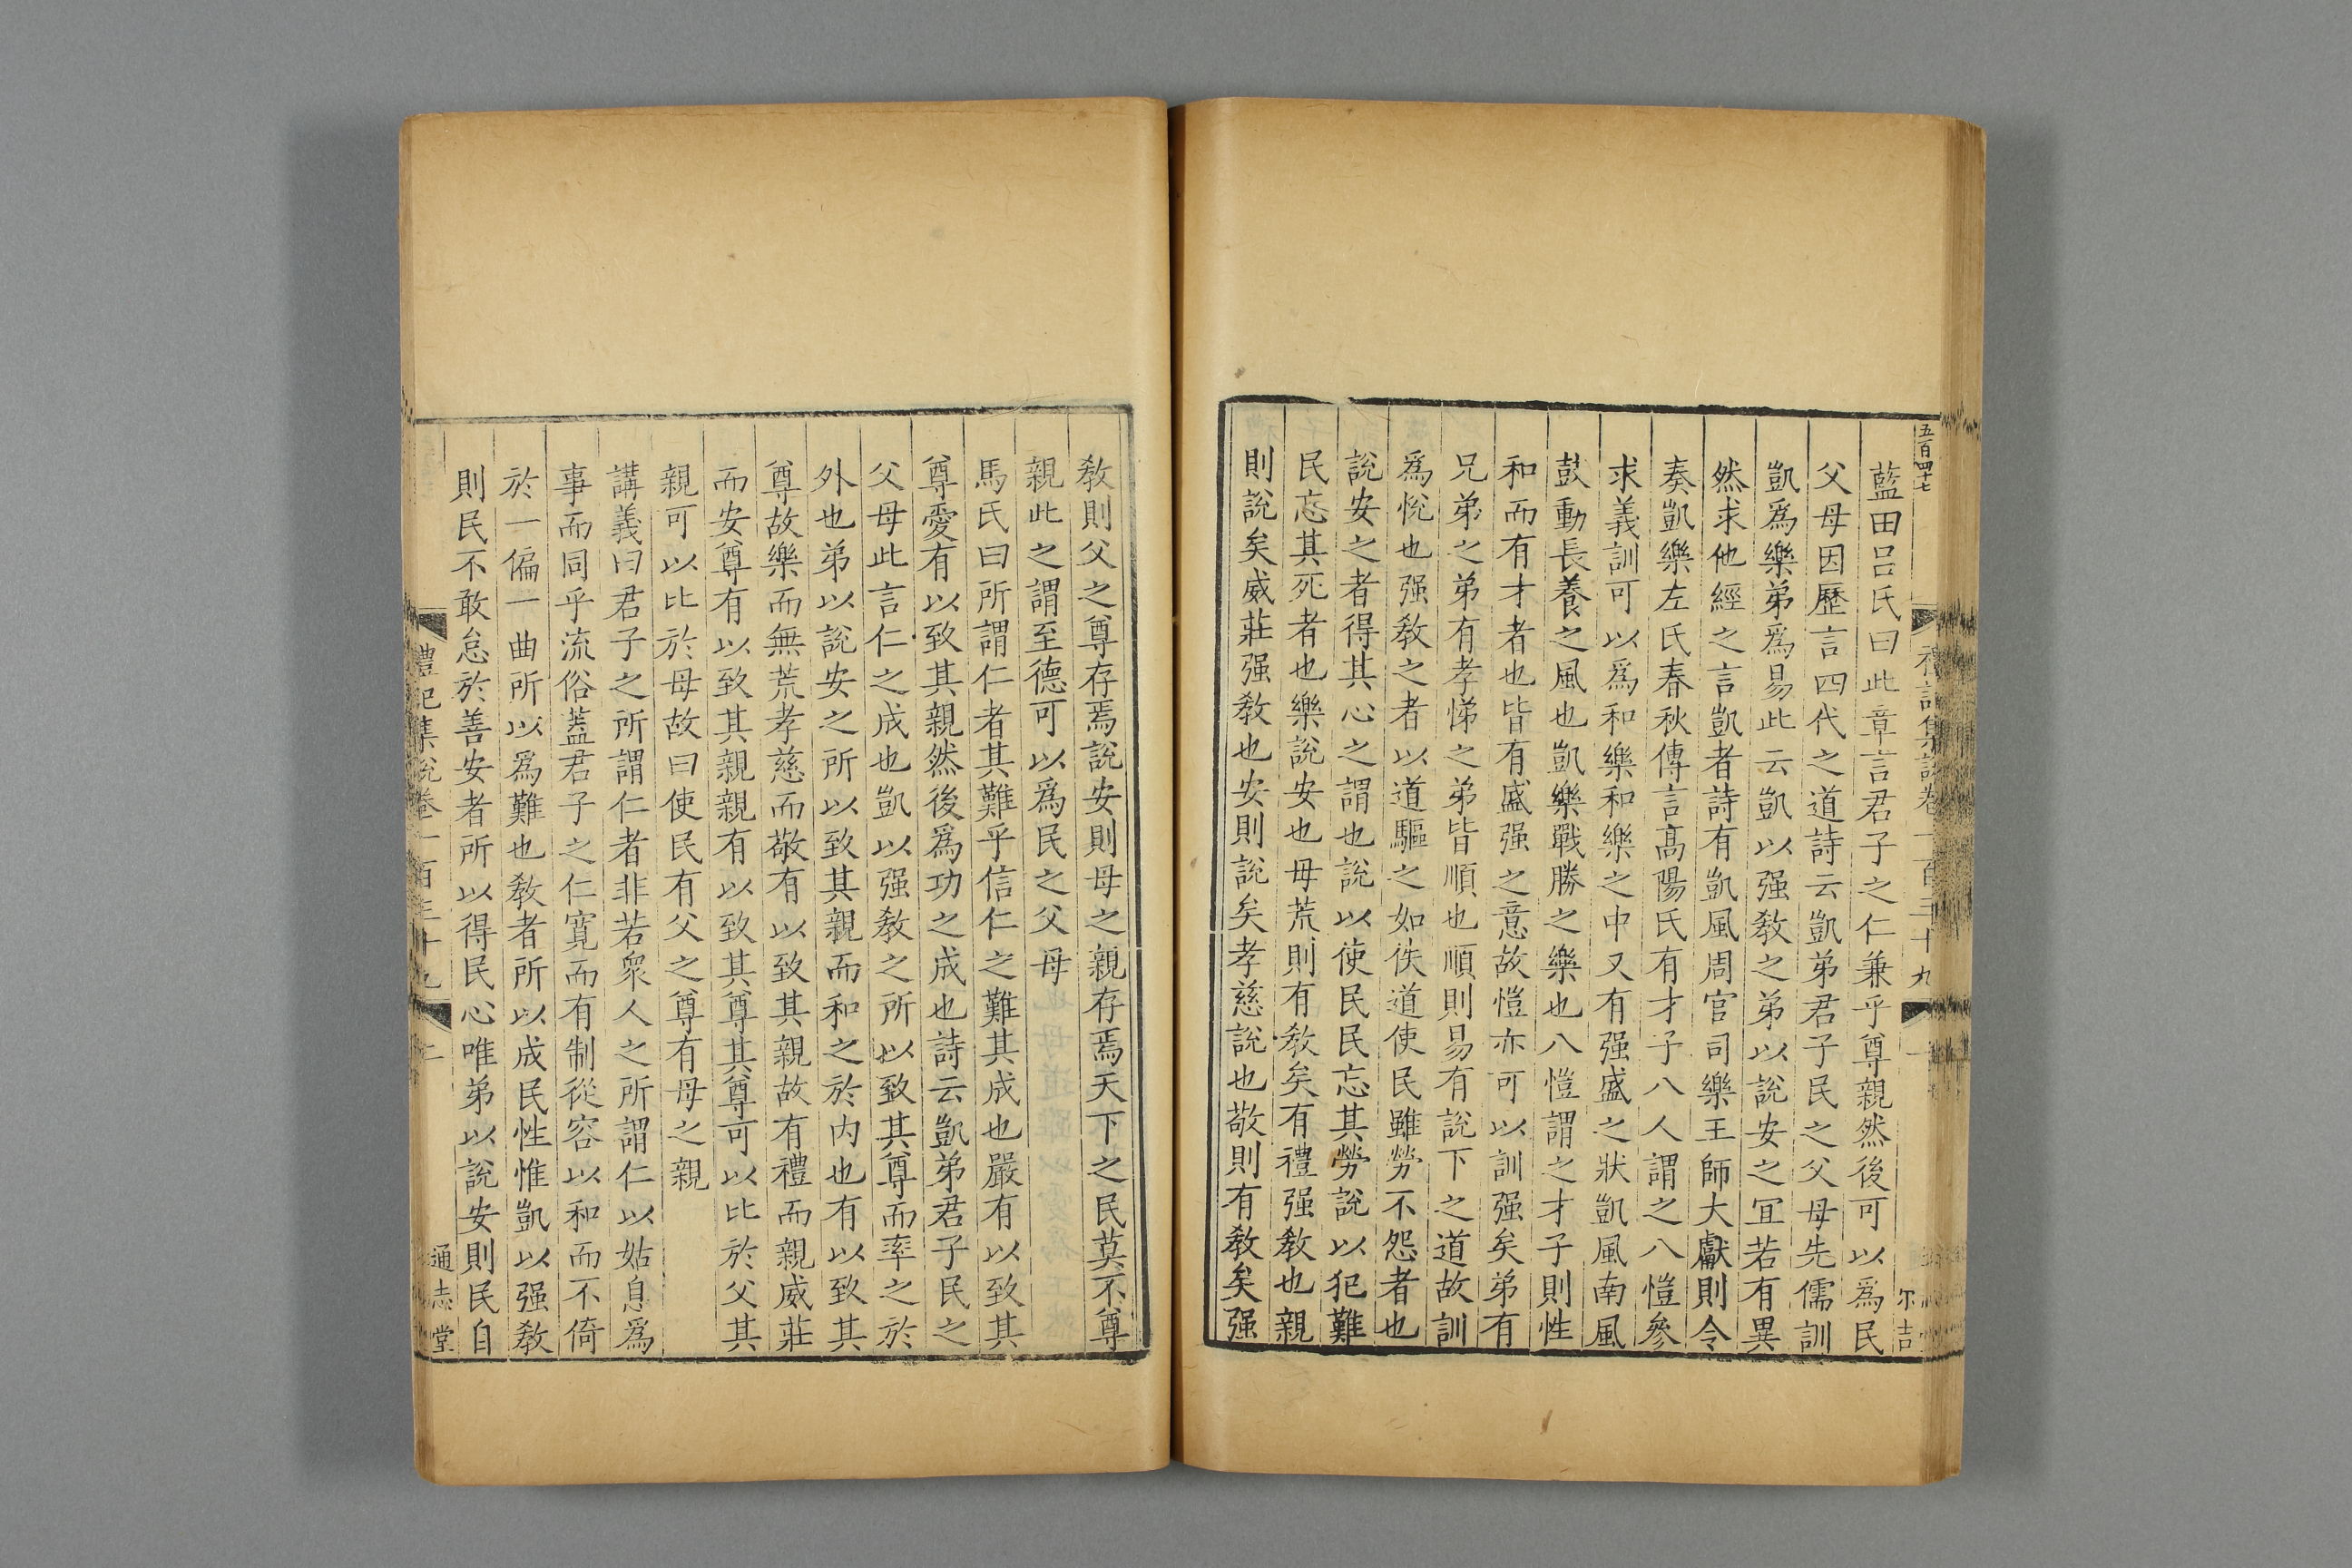 五百四十七
禮記集說卷一百三十九
一
尔吉
藍田呂氏曰此章言君子之仁兼乎尊親然後可以爲民
父母因歷言四代之道詩云凱弟君子民之父母先儒訓
凱爲樂弟爲易此云凱以强敎之弟以說安之冝若有異
然求他經之言凱者詩有凱風周官司樂王師大獻則令
奏凱樂左氏春秋傳言髙陽氏有才子八人謂之八愷參
求義訓可以爲和樂和樂之中又有强盛之狀凱風南風
鼓動長養之風也凱樂戰勝之樂也八愷謂之才子則性
和而有才者也皆有盛强之意故愷亦可以訓强矣弟有
兄弟之弟有孝悌之弟皆順也順則易有說下之道故訓
爲悅也强敎之者以道驅之如佚道使民雖勞不怨者也
說安之者得其心之謂也說以使民民忘其勞說以犯難
民忘其死者也樂說安也毋荒則有敎矣有禮强敎也親
則說矣威莊强敎也安則說矣孝慈說也敬則有敎矣强
敎則父之尊存焉說安則母之親存焉天下之民莫不尊
親此之謂至德可以爲民之父母
馬氏曰所謂仁者其難乎信仁之難其成也嚴有以致其
尊愛有以致其親然後爲功之成也詩云凱弟君子民之
父母此言仁之成也凱以强敎之所以致其尊而率之於
外也弟以說安之所以致其親而和之於内也有以致其
尊故樂而無荒孝慈而敬有以致其親故有禮而親威莊
而安尊有以致其親親有以致其尊其尊可以比於父其
親可以比於母故曰使民有父之尊有母之親
講義曰君子之所謂仁者非若衆人之所謂仁以姑息爲
事而同乎流俗蓋君子之仁寬而有制從容以和而不倚
於一偏一曲所以爲難也敎者所以成民性惟凱以强敎
則民不敢怠於善安者所以得民心唯弟以說安則民自
禮記集說卷一百三十九
二
通志堂